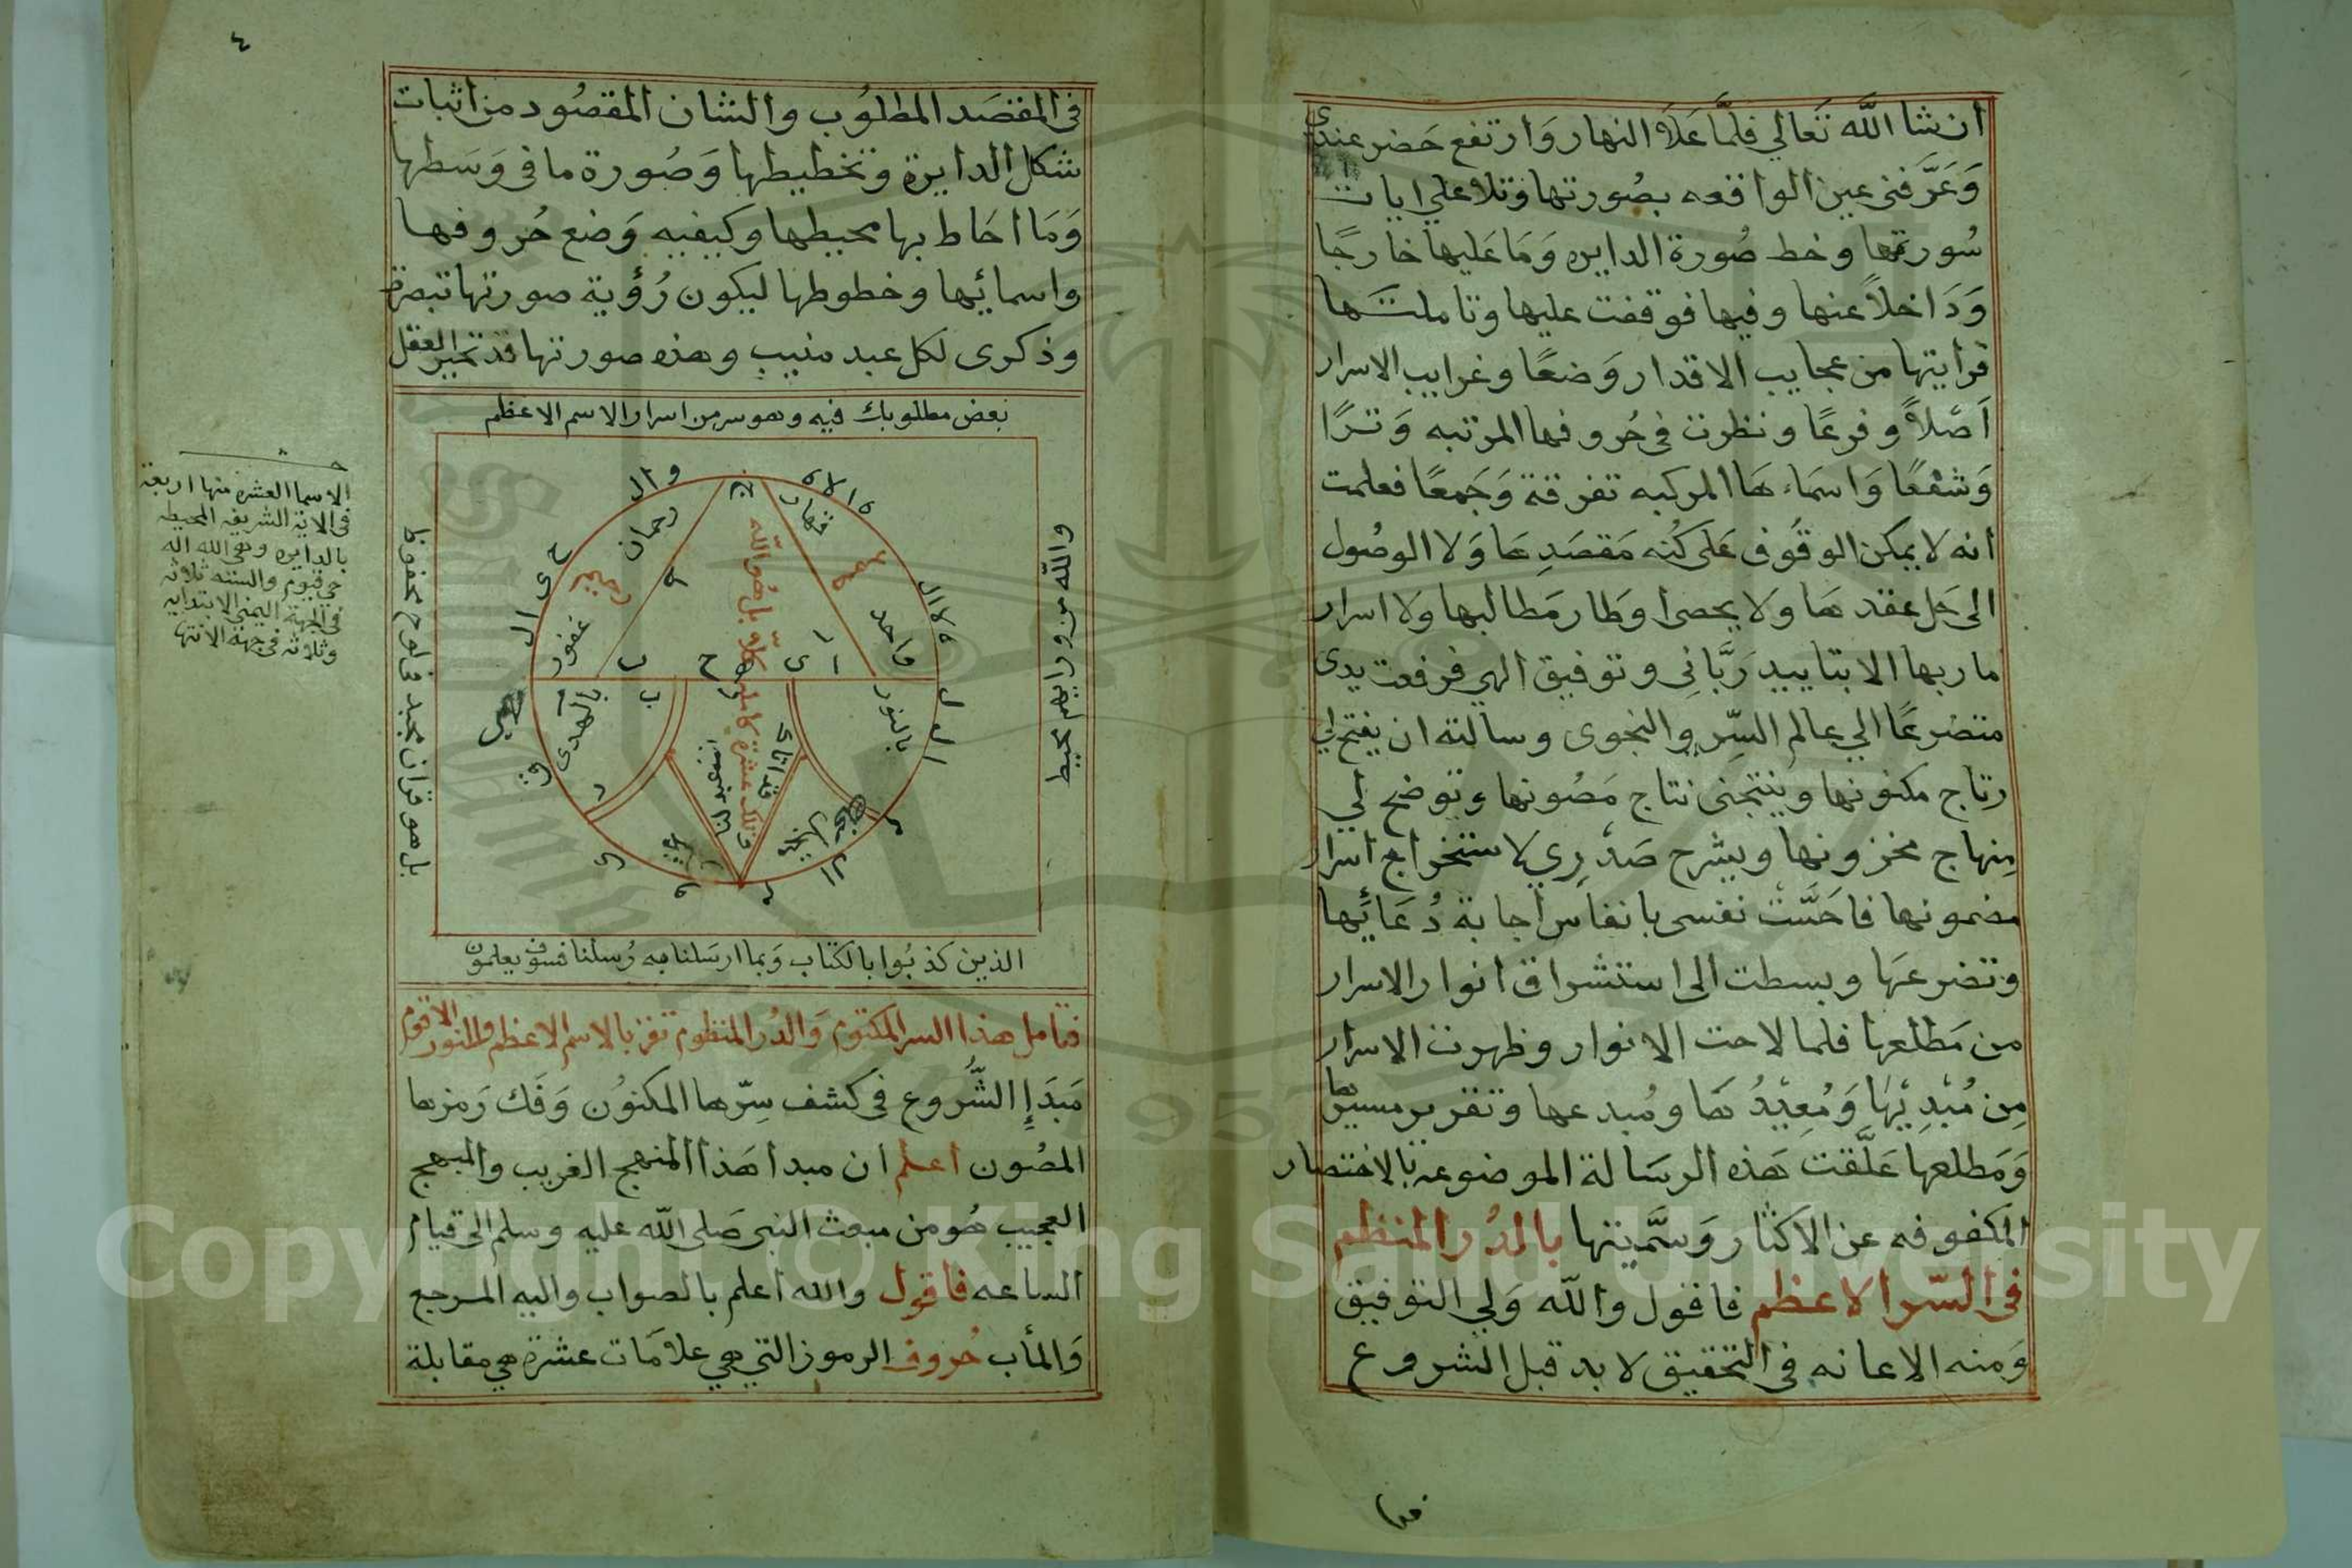 ان شا الله تَعالي فلمَّا عَلاَ النهار وَارتفع حَضر عندى
وَعَرَّفنى عين الواقعه بصُورتها وتلا علي ايات
سُورتها وخط صُورة الدايره وَمَا عَليها خارجًا
وَدَاخلاً عنها وفيها فوقفت عليها وتاملتها
فرايتها من عجايب الاقدار وَضعًا وغرايب الاسرار
اَصْلاً وفرعًا ونظرت فى حُروفها المرتبه وَترًا
وَشفعًا وَاسمَاءهَا المركبه تفرقة وَجَمعًا فعلمت
انه لا يمكن الوقُوف عَلى كُنه مَقصَدِها وَلا الوصُول
الى حَل عقدها ولا يحصى اوطار مَطالبها ولا اسرار
ماربها الا بتاييد رَبَّانِى وتوفيق الهي فرفعت يدى
متضرعًا الي عالم السِّر والنجوى وسالته ان يفتح لي
رتاج مكنونها وينتجنى نتاج مَصُونها وتوضح لي
مِنهاج مخزونها ويشرح صَدْرِي لاستخراج اسرار
مضمونها فاحَسَّتْ نفسى بانفاس اجابة دُعَائها
وتضرعهَا وبسطت الى استشراق انوار الاسرار
من مَطلعها فلما لاحت الانوار وظهرت الاسرار
مِن مُبْدِيْهَا وَمُعِيْدُهَا ومُبدعها وتقرير مسيرها
وَمَطلعها عَلَّقت هَذه الرسَالة الموضوعه بالاختصار
المكفوفه عن الاكثار وَسَمَّيتها بالدُر المنظم
فى السّر الاعظم فاقول والله وَلي التوفيق
وَمنه الاعانه فى التحقيق لابد قبل الشروع
٤
فى المقصَد المطلوُب والشان المقصُود من اثبات
شكل الدايرة وتخطيطها وَصُورة ما فى وَسَطها
وَمَا احَاط بها محيطها وكيفيه وَضع حُروفها
واسمائها وخطوطها ليكون رُؤية صورتها تبصرة
وذكرى لكل عبد منيب وهذه صورتها قد تحير العقل
بعض مطلوبك فيه وهو سر من اسرار الاسم الاعظم
والله من ورايهم محيط
بل هو قران مجيد فى لوح محفوظ
رحمان
قهار
غفور
واحد
كلاّ بل هُو الله
بالهدى
بالنور
وتلك عشرة كاملة
الذين كذبُوا بالكتاب وَبما ارسَلنا به رُسلنا فسوف يعلمون
الاسما العشره منها اربعة
فى الاية الشريفه المحيطه
بالدايره وهى الله اله
حي قيوم والستة ثلاثه
فى الجهة اليمنى الابتدايه
وثلاثه فى جهة الانتها
فتامل هذا السر المكتوم وَالدُر المنظوم تفز بالاسم الاعظم والنور الاقوم
مَبَدَإِ الشُّروع فى كشف سِرّها المكنوُن وَفَك رَمزها
المصُون اعلم ان مبدا هَذا المنهج الغريب والمبهج
العجيب هُو من مبعث النبى صَلى الله عليه وسلم الى قيام
الساعه فاقول والله اعلم بالصواب واليه المرجع
وَالمأب حُروف الرموز التي هي علامَات عشرة هي مقابلة
Copyright © King Saud University